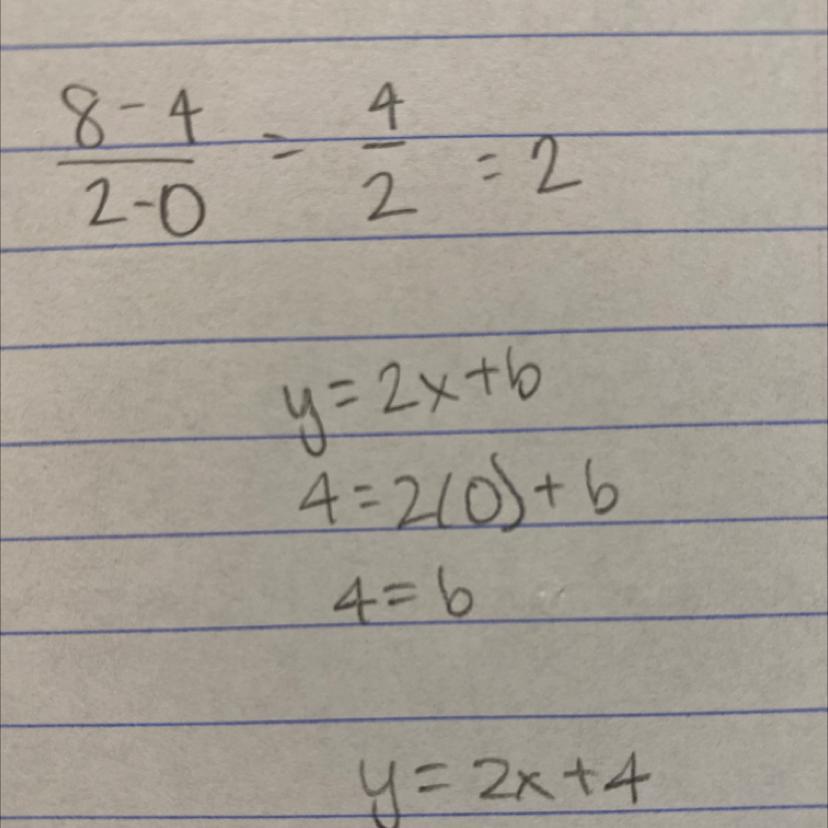 8-4/2-0 = 4/2 = 2
y=2x+b
4=2(0)+b
4=b
y=2x+4